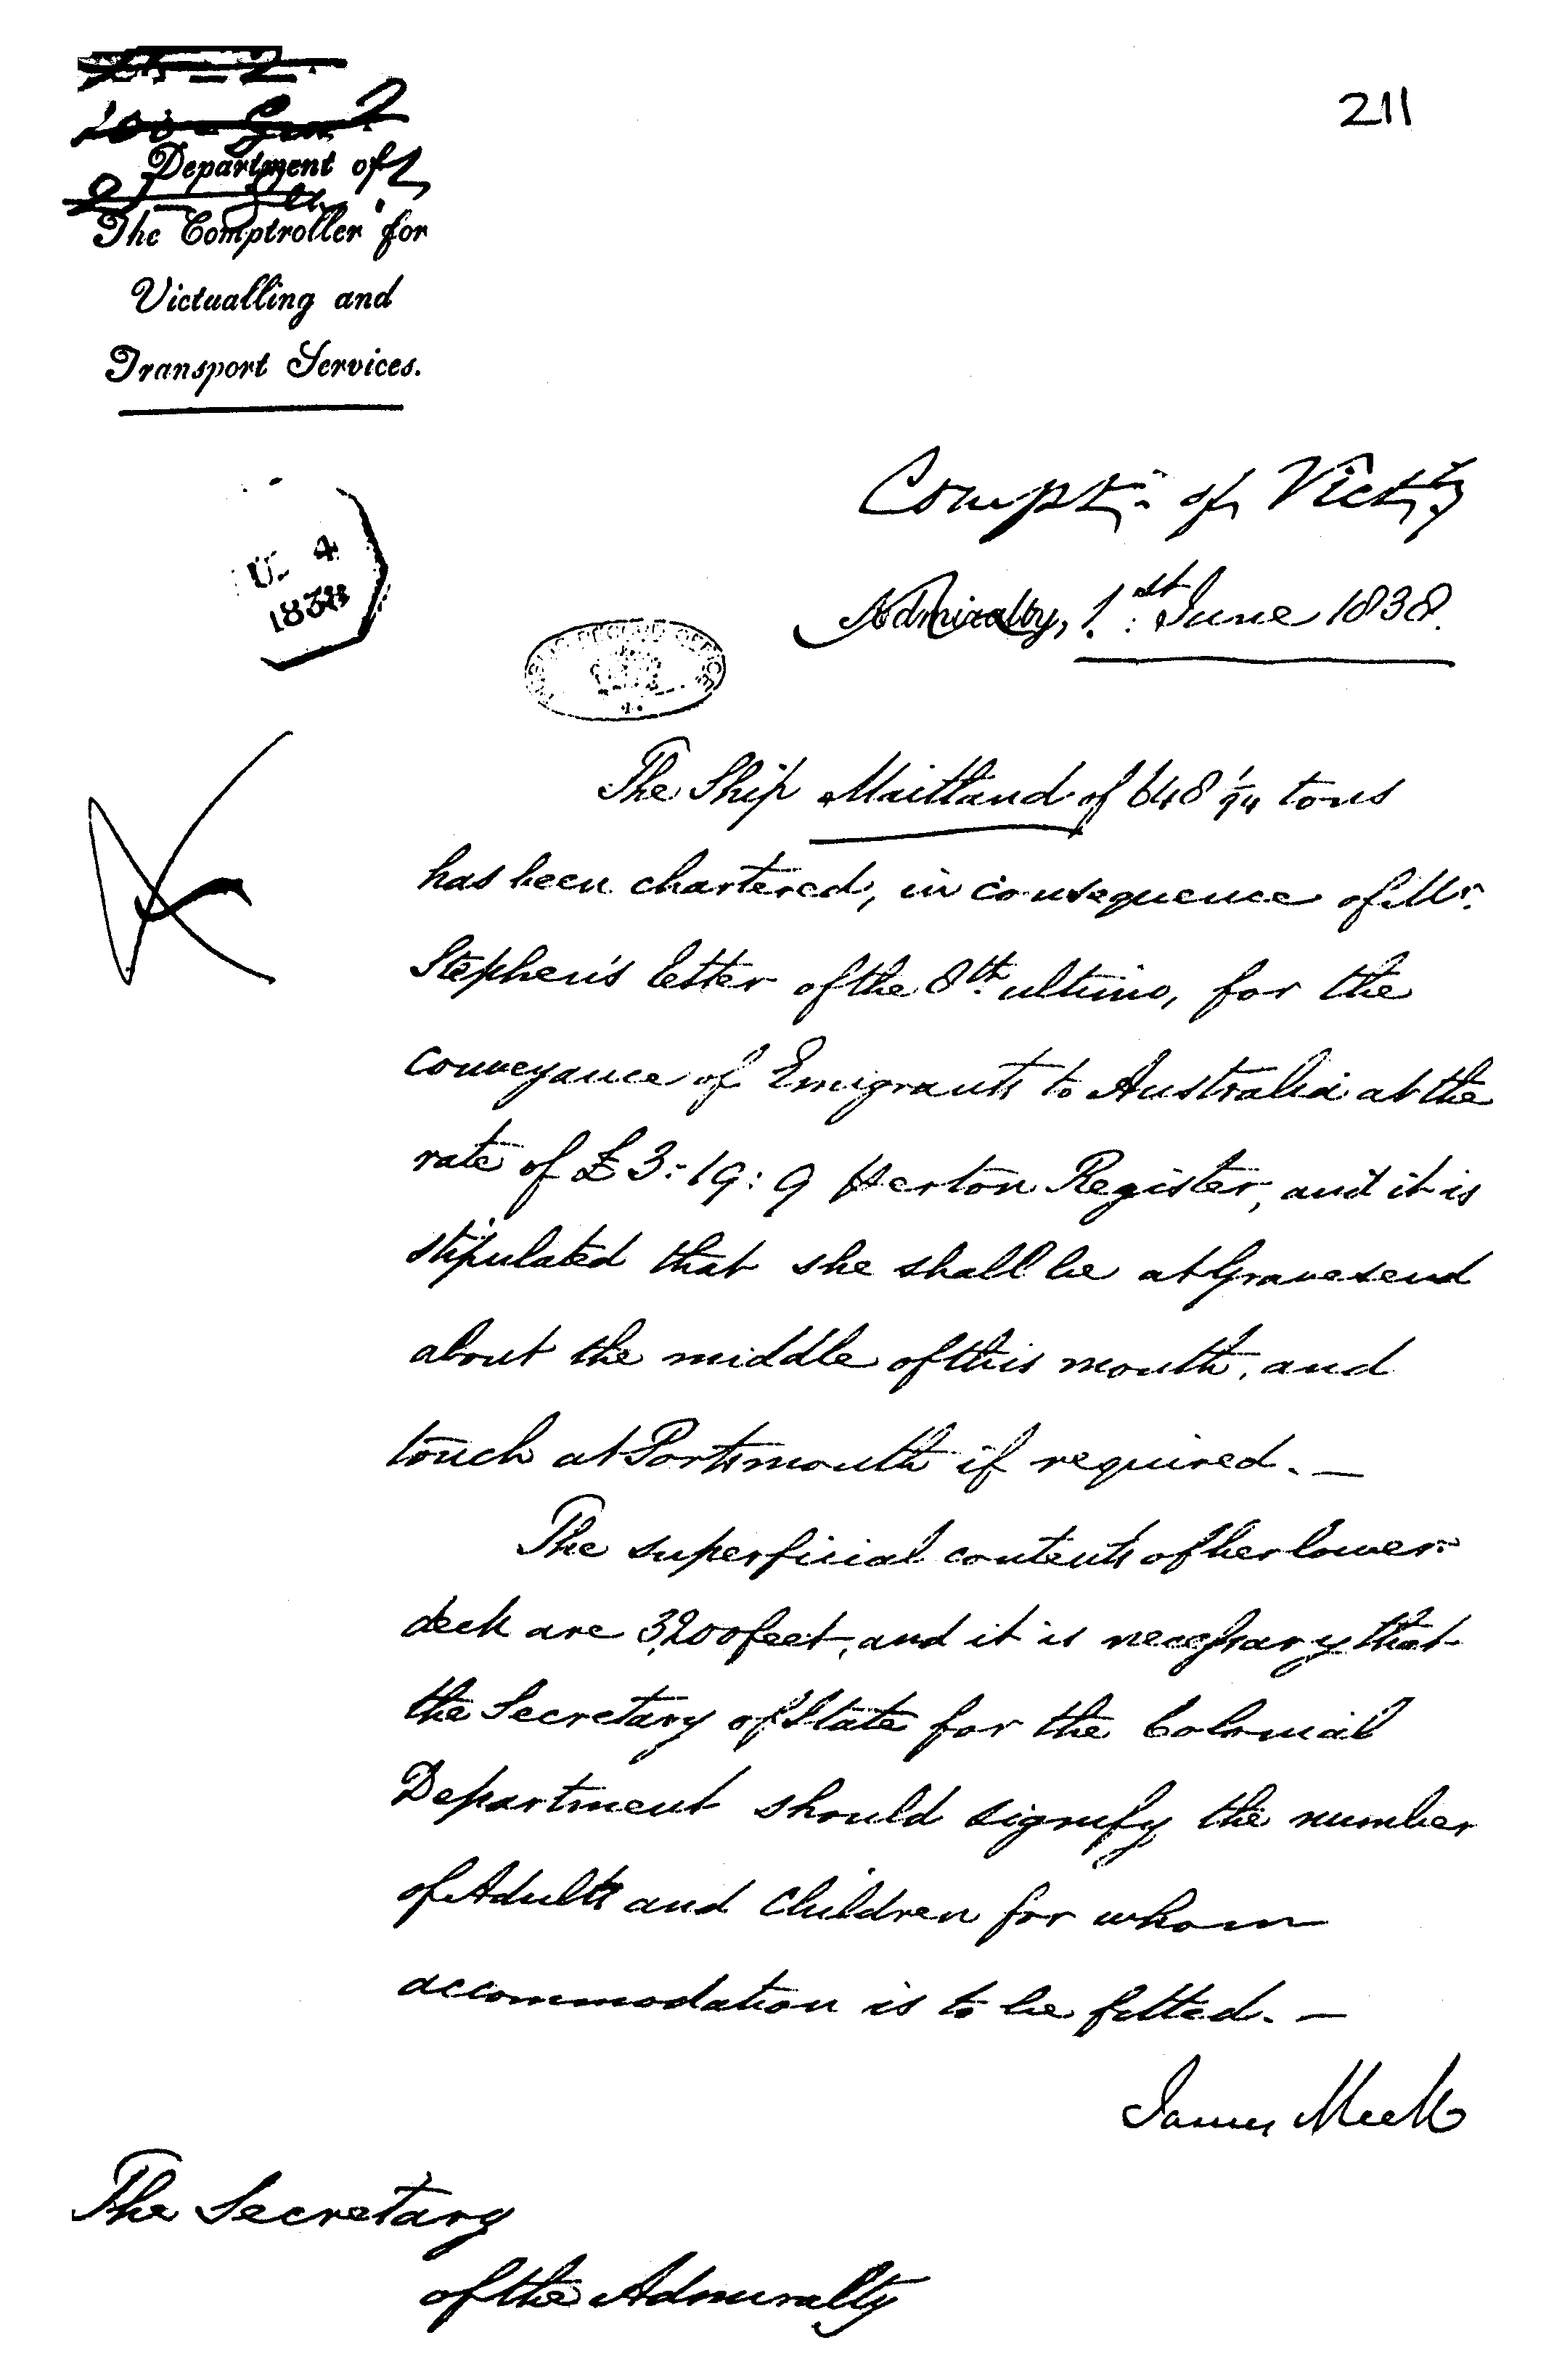 211
Department of
The Comptroller for
Victualling and
Transport Services.
Compt.r of Vict.g
U. 4
1838
Admiralty, 1.st June 1838.
PUBLIC RECORD OFFICE
The Ship Maitland of 648 1/94 tons
has been chartered, in consequence of Mr.
Stephen's letter of the 8th. ultimo, for the
conveyance of Emigrants to Australia at the
rate of £3:19:9 per ton Register, and it is
stipulated that she shall be at Gravesend
about the middle of this month, and
touch at Portsmouth if required. —
The superficial contents of her lower
deck are 3,200 feet, and it is necessary that
the Secretary of State for the Colonial
Department should signify the number
of Adults and Children for whom
accommodation is to be fitted. —
James Meek
The Secretary
of the Admiralty